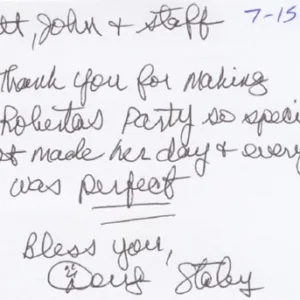 tt, John & staff 7-15
Thank you for making
Roberta's party so speci
at made her day & every
was perfect
Bless you,
Doug Staley